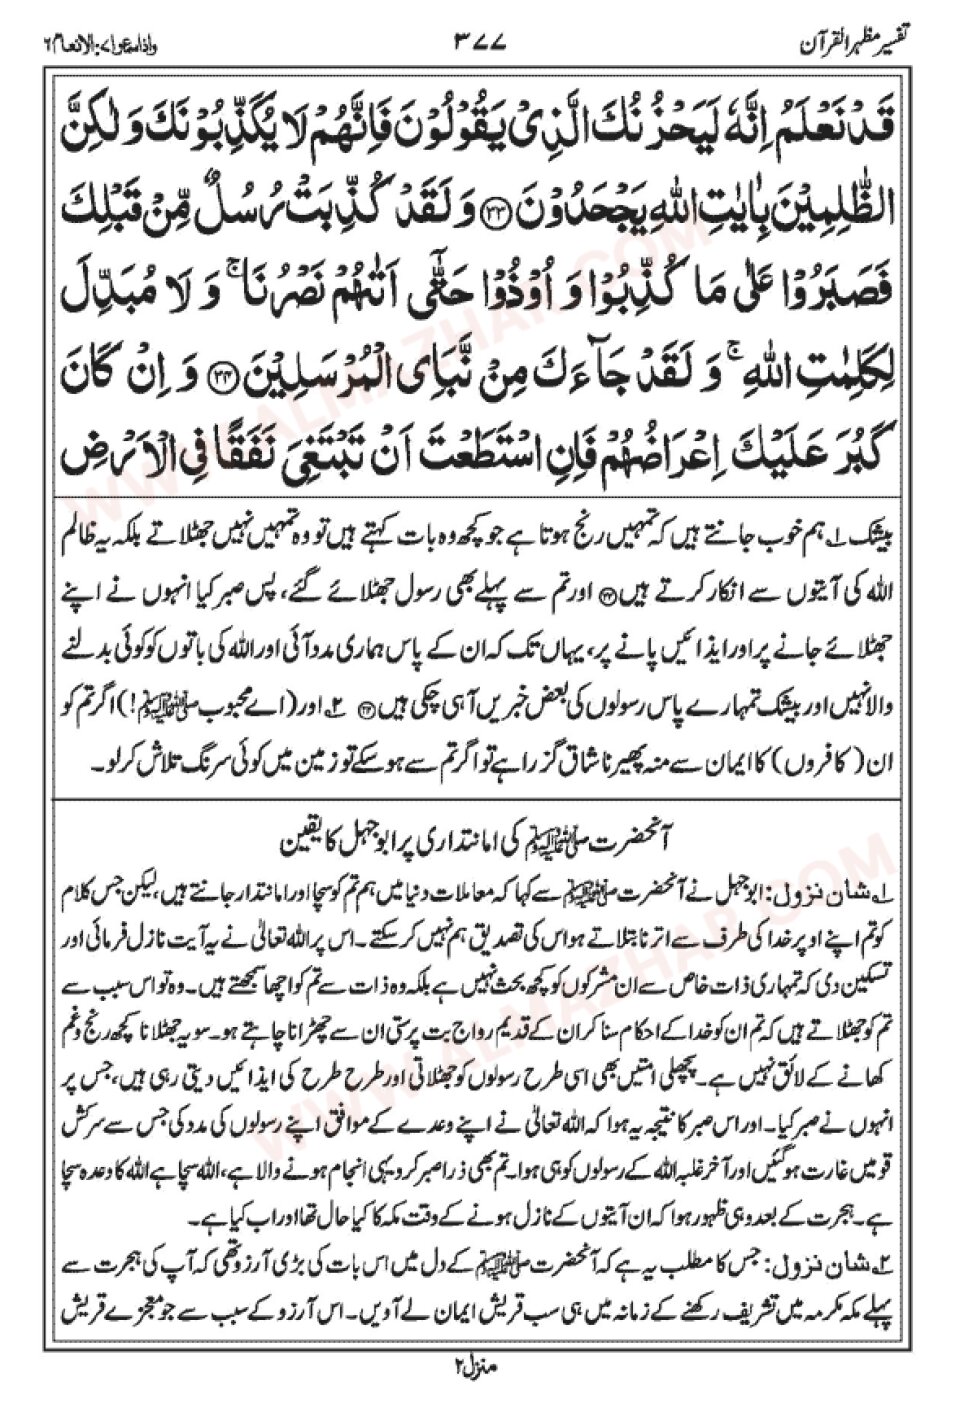 تفسیر مظہر القرآن
۳۷۷
واذا سمعوا ۷: الانعام ۶
قَدْ نَعْلَمُ اِنَّهٗ لَیَحْزُنُكَ الَّذِیْ یَقُوْلُوْنَ فَاِنَّهُمْ لَا یُكَذِّبُوْنَكَ وَ لٰكِنَّ
الظّٰلِمِیْنَ بِاٰیٰتِ اللّٰهِ یَجْحَدُوْنَ ۝۳۳ وَ لَقَدْ كُذِّبَتْ رُسُلٌ مِّنْ قَبْلِكَ
فَصَبَرُوْا عَلٰى مَا كُذِّبُوْا وَ اُوْذُوْا حَتّٰۤى اَتٰىهُمْ نَصْرُنَا ۚ وَ لَا مُبَدِّلَ
لِكَلِمٰتِ اللّٰهِ ۚ وَ لَقَدْ جَآءَكَ مِنْ نَّبَاِی الْمُرْسَلِیْنَ ۝۳۴ وَ اِنْ كَانَ
كَبُرَ عَلَیْكَ اِعْرَاضُهُمْ فَاِنِ اسْتَطَعْتَ اَنْ تَبْتَغِیَ نَفَقًا فِی الْاَرْضِ
بیشک ۱؂ ہم خوب جانتے ہیں کہ تمہیں رنج ہوتا ہے جو کچھ وہ بات کہتے ہیں تو وہ تمہیں نہیں جھٹلاتے بلکہ یہ ظالم
اللہ کی آیتوں سے انکار کرتے ہیں ۝۳۳ اور تم سے پہلے بھی رسول جھٹلائے گئے، پس صبر کیا انہوں نے اپنے
جھٹلائے جانے پر اور ایذائیں پانے پر، یہاں تک کہ ان کے پاس ہماری مدد آئی اور اللہ کی باتوں کو کوئی بدلنے
والا نہیں اور بیشک تمہارے پاس رسولوں کی بعض خبریں آ ہی چکی ہیں ۝۳۴ ۲؂ اور (اے محبوب ﷺ!) اگر تم کو
ان (کافروں) کا ایمان سے منہ پھیرنا شاق گزرا ہے تو اگر تم سے ہو سکے تو زمین میں کوئی سرنگ تلاش کر لو۔
آنحضرت ﷺ کی امانتداری پر ابوجہل کا یقین
۱؂ شان نزول: ابوجہل نے آنحضرت ﷺ سے کہا کہ معاملات دنیا میں ہم تم کو سچا اور امانتدار جانتے ہیں، لیکن جس کلام
کو تم اپنے اوپر خدا کی طرف سے اترنا بتلاتے ہو اس کی تصدیق ہم نہیں کر سکتے۔ اس پر اللہ تعالیٰ نے یہ آیت نازل فرمائی اور
تسکین دی کہ تمہاری ذات خاص سے ان مشرکوں کو کچھ بحث نہیں ہے بلکہ وہ ذات سے تم کو اچھا سمجھتے ہیں۔ وہ تو اس سبب سے
تم کو جھٹلاتے ہیں کہ تم ان کو خدا کے احکام سنا کر ان کے قدیم رواج بت پرستی ان سے چھڑانا چاہتے ہو۔ سو یہ جھٹلانا کچھ رنج و غم
کھانے کے لائق نہیں ہے۔ پچھلی امتیں بھی اسی طرح رسولوں کو جھٹلاتی اور طرح طرح کی ایذائیں دیتی رہی ہیں، جس پر
انہوں نے صبر کیا۔ اور اس صبر کا نتیجہ یہ ہوا کہ اللہ تعالیٰ نے اپنے وعدے کے موافق اپنے رسولوں کی مدد کی جس سے سرکش
قومیں غارت ہو گئیں اور آخر غلبہ اللہ کے رسولوں کو ہی ہوا۔ تم بھی ذرا صبر کرو یہی انجام ہونے والا ہے، اللہ سچا ہے اللہ کا وعدہ سچا
ہے۔ ہجرت کے بعد وہی ظہور ہوا کہ ان آیتوں کے نازل ہونے کے وقت مکہ کا کیا حال تھا اور اب کیا ہے۔
۲؂ شان نزول: جس کا مطلب یہ ہے کہ آنحضرت ﷺ کے دل میں اس بات کی بڑی آرزو تھی کہ آپ کی ہجرت سے
پہلے مکہ مکرمہ میں تشریف رکھنے کے زمانہ میں ہی سب قریش ایمان لے آویں۔ اس آرزو کے سبب سے جو معجزے قریش
منزل ۲
WWW.ALMAZHAR.COM
WWW.ALMAZHAR.COM